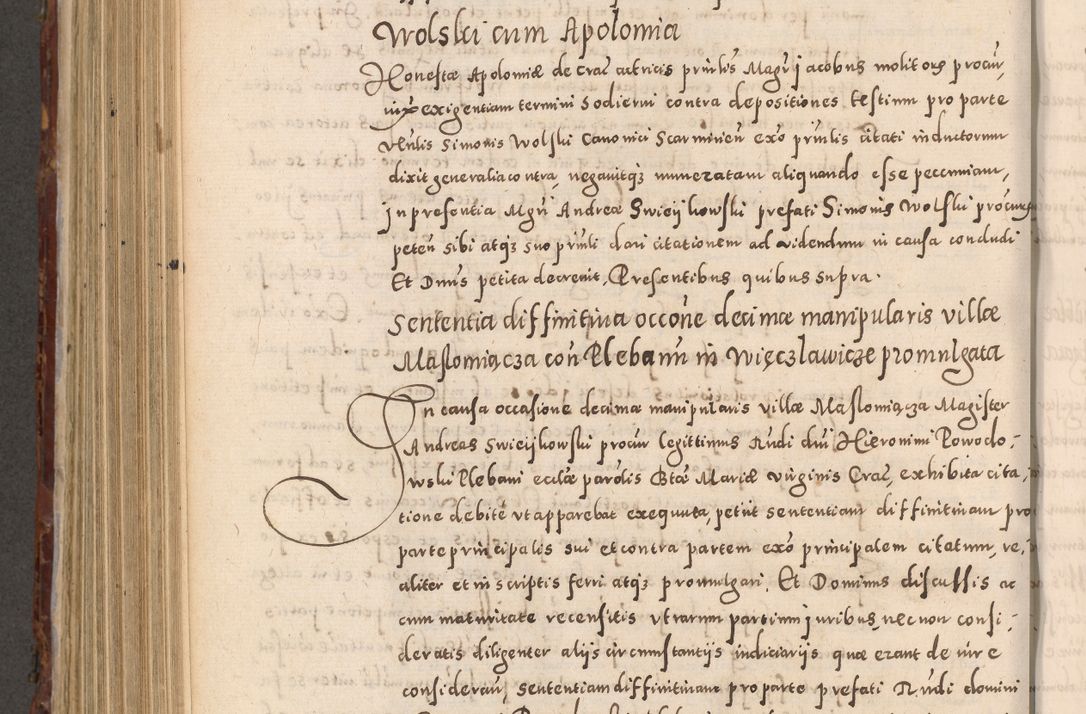 Wolski cum Apolomia
Honestæ Apolomiæ de Crac̃ actricis prinlis Magr̃ Jacobus molitors procur̃,
iuxta exigentiam termini hodierni contra depositiones testium pro parte
Vẽnlis Simonis Wolski Canonici Scarmirień exõ prinlis citati inductorum
dixit generalia contra, negauitq3 numeratam aliquando esse pecuniam,
in presentia Mgrĩ Andreæ Swieijkowski prefati Simonis Wolski procuris
peteñ sibi atq3 suo prinli dari citationem ad videndum in causa concludi
Et Dnũs petita decreuit. Presentibus quibus supra.
Sententia diffinitiua occõne decimæ manipularis villæ
Maslomiącza coñ Plebanũ in Więczlawicze promulgata
In causa occasione decimæ manipularis villæ Maslomiącza Magister
Andreas Swieijkowski procur̃ legittimus Rñdi dnĩ Hieronimi Powodo-
wski Plebani eccłæ parõlis Btæ Mariæ virginis Crac̃, exhibita cita,
tione debitè vt apparebat exequuta, petiit sententiam diffinitiuam pro
parte principalis sui et contra partem exõ principalem citatum, re,
aliter et in scriptis ferri atq3 promulgari. Et Dominus discussis ac
cum maturitate recensitis vtrarum partium juribus, nec non consi-
deratis diligenter alijs circumstantijs indiciarijs quæ erant de iure
considerañ, sententiam diffinitiuam pro parte prefati Rñdi domini